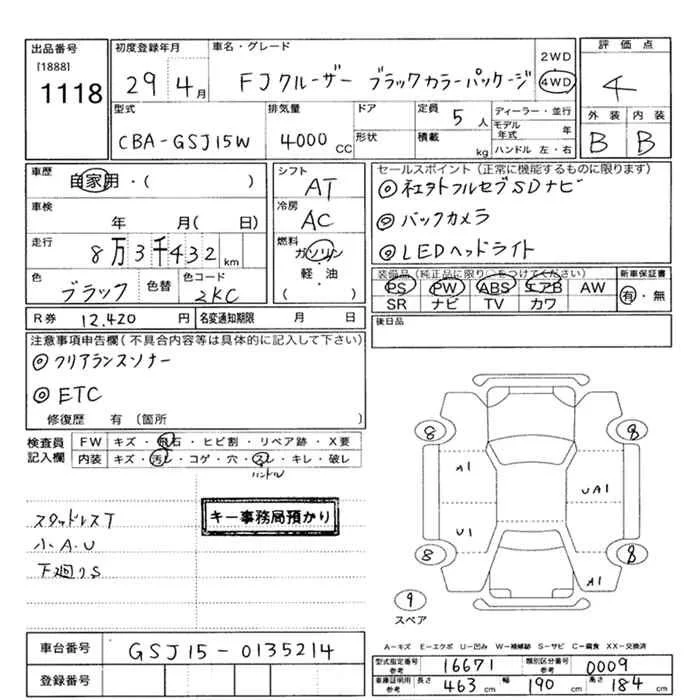 出品番号
[1888]
1118
初度登録年月
29 4月
車名・グレード
FJクルーザー ブラックカラーパッケージ
2WD
4WD
評価点
4
外装 内装
B B
型式
CBA-GSJ15W
排気量
4000 CC
ドア
形状
定員 5 人
積載 kg
ディーラー・並行
モデル年式 年
ハンドル 左・右
車歴
自家用・( )
車検
年 月( 日)
走行
8万3千432 km
色
ブラック
色替
色コード
2KC
シフト
AT
冷房
AC
燃料
ガソリン
軽・油
( )
セールスポイント(正常に機能するものに限ります)
◎社外フルセグSDナビ
◎バックカメラ
◎LEDヘッドライト
装備品(純正品に限り○をつけてください)
PS PW ABS エアB AW
SR ナビ TV カワ
新車保証書
有・無
R券 12,420 円
名変通知期限 月 日
後日品
注意事項申告欄(不具合内容等は具体的に記入して下さい)
◎クリアランスソナー
◎ETC
修復歴 有 〔箇所
検査員
記入欄
FW キズ・飛石・ヒビ割・リペア跡・X要
内装 キズ・汚レ・コゲ・穴・スレ・キレ・破レ
ハンドル
スタッドレスT
小・A・U
下廻りS
キー事務局預かり
8 8
A1
UA1
U1
8 8
A1
9
スペア
車台番号
GSJ15-0135214
登録番号
A-キズ E-エクボ U-凹み W-補修跡 S-サビ C-腐食 XX-交換済
型式指定番号 参考 16671
類別区分番号 参考 0009
車庫証明用 参考 長さ 463 cm 幅 190 cm 高さ 184 cm